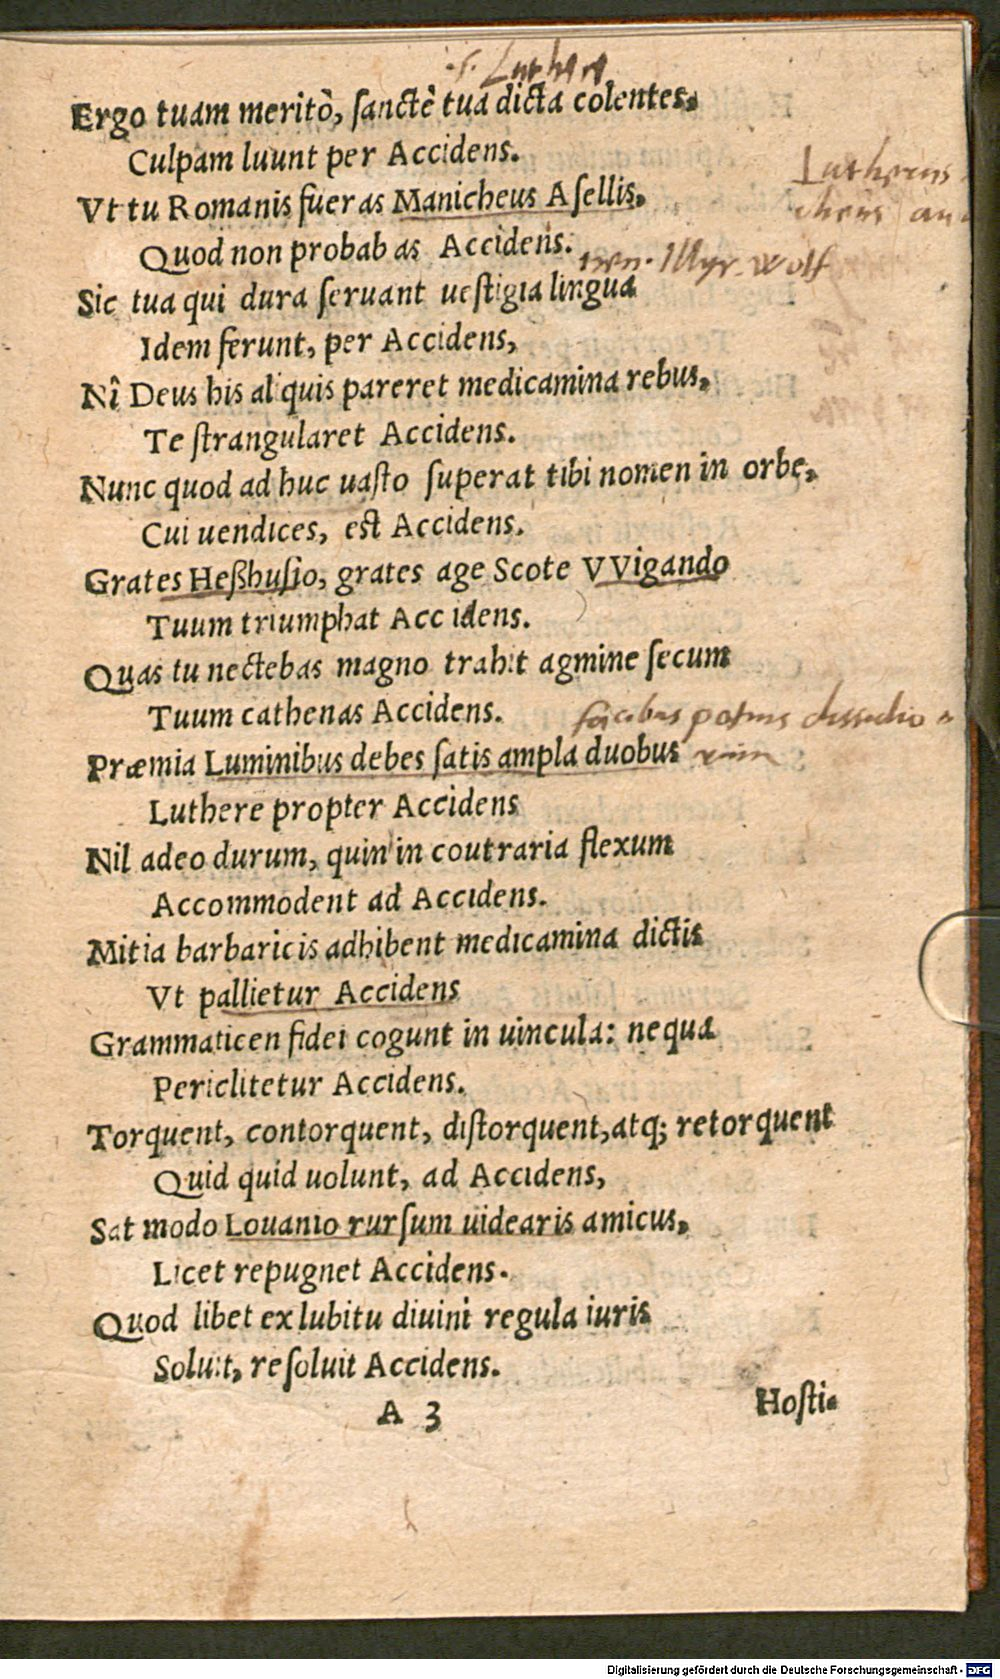 s. Lutheri
Ergo tuam meritò, sanctè tua dicta colentes.
Culpam luunt per Accidens.
Lutherus
Vt tu Romanis fueras Manicheus Asellis.
Quod non probabas Accidens.
Illyr. Wolf
Sic tua qui dura seruant uestigia lingua
Idem ferunt, per Accidens,
Nî Deus his aliquis pareret medicamina rebus.
Te strangularet Accidens.
Nunc quod ad huc uasto superat tibi nomen in orbe.
Cui uendices, est Accidens.
Grates Heßhusio, grates age Scote VVigando
Tuum triumphat Accidens.
Quas tu nectebas magno trahit agmine secum
Tuum cathenas Accidens.
facibus potius dissidio
rum
Præmia Luminibus debes satis ampla duobus
Luthere propter Accidens
Nil adeo durum, quin in coutraria flexum
Accommodent ad Accidens.
Mitia barbaricis adhibent medicamina dictis
Vt pallietur Accidens
Grammaticen fidei cogunt in uincula: ne qua
Periclitetur Accidens.
Torquent, contorquent, distorquent, atq; retorquent
Quid quid uolunt, ad Accidens,
Sat modo Louanio rursum uidearis amicus.
Licet repugnet Accidens.
Quod libet ex lubitu diuini regula iuris
Soluit, resoluit Accidens.
A 3
Hosti-
Digitalisierung gefördert durch die Deutsche Forschungsgemeinschaft - DFG